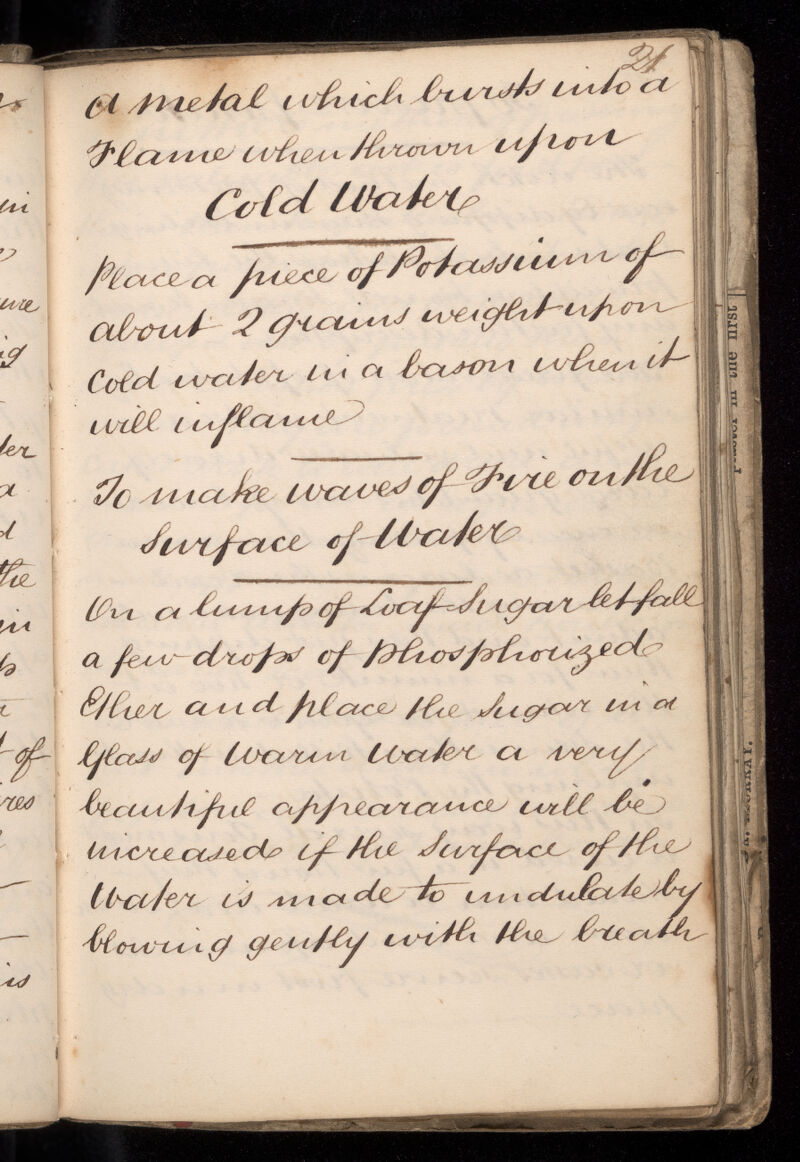 21
A metal which bursts into a
Flame when thrown upon
Cold Water
Place a piece of Potassium of
about 2 grains weight upon
Cold water in a bason when it
will inflame
To make waves of Fire on the
Surface of Water
On a lump of Loaf Sugar let fall
a few drops of phosphorized
Ether and place the Sugar in a
Glass of Warm Water a very
beautiful appearance will be
increased if the Surface of the
Water is made to undulate by
blowing gently with the breath
in the first